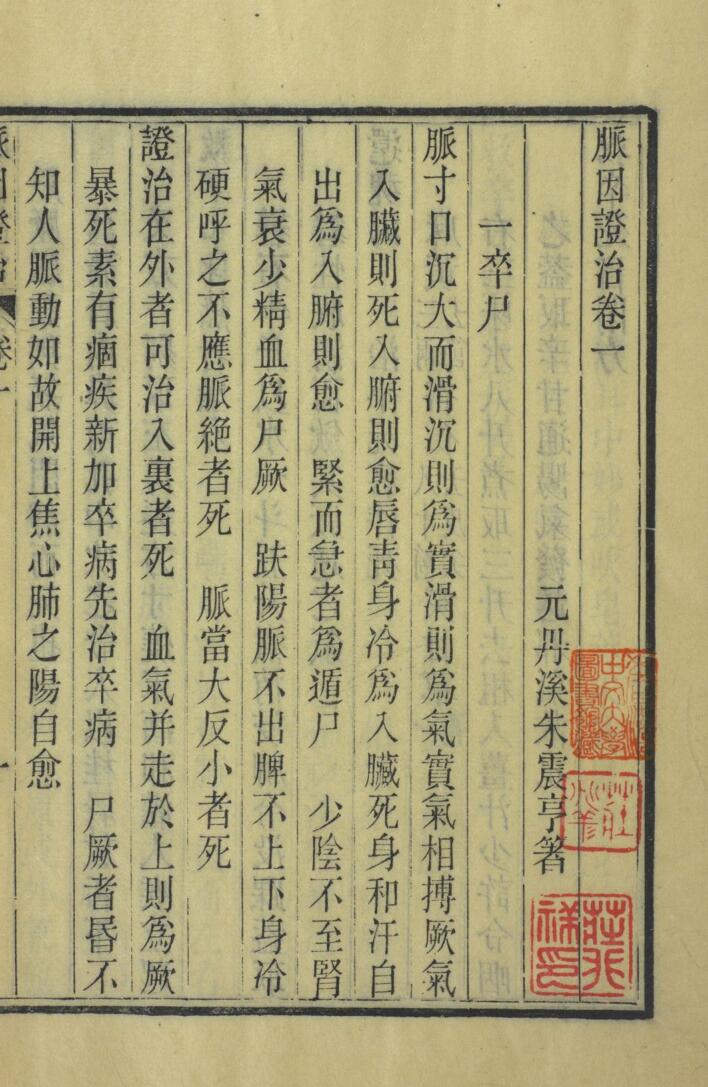 脈因證治卷一
元丹溪朱震亨著
一卒尸
脈寸口沉大而滑沉則爲實滑則爲氣實氣相搏厥氣
入臟則死入腑則愈唇靑身冷爲入臟死身和汗自
出爲入腑則愈　緊而急者爲遁尸　少陰不至腎
氣衰少精血爲尸厥　趺陽脈不出脾不上下身冷
硬呼之不應脈絶者死　脈當大反小者死
證治在外者可治入裏者死　血氣并走於上則爲厥
暴死素有痼疾新加卒病先治卒病　尸厥者昬不
知人脈動如故開上焦心肺之陽自愈
脈因證治　卷一　一